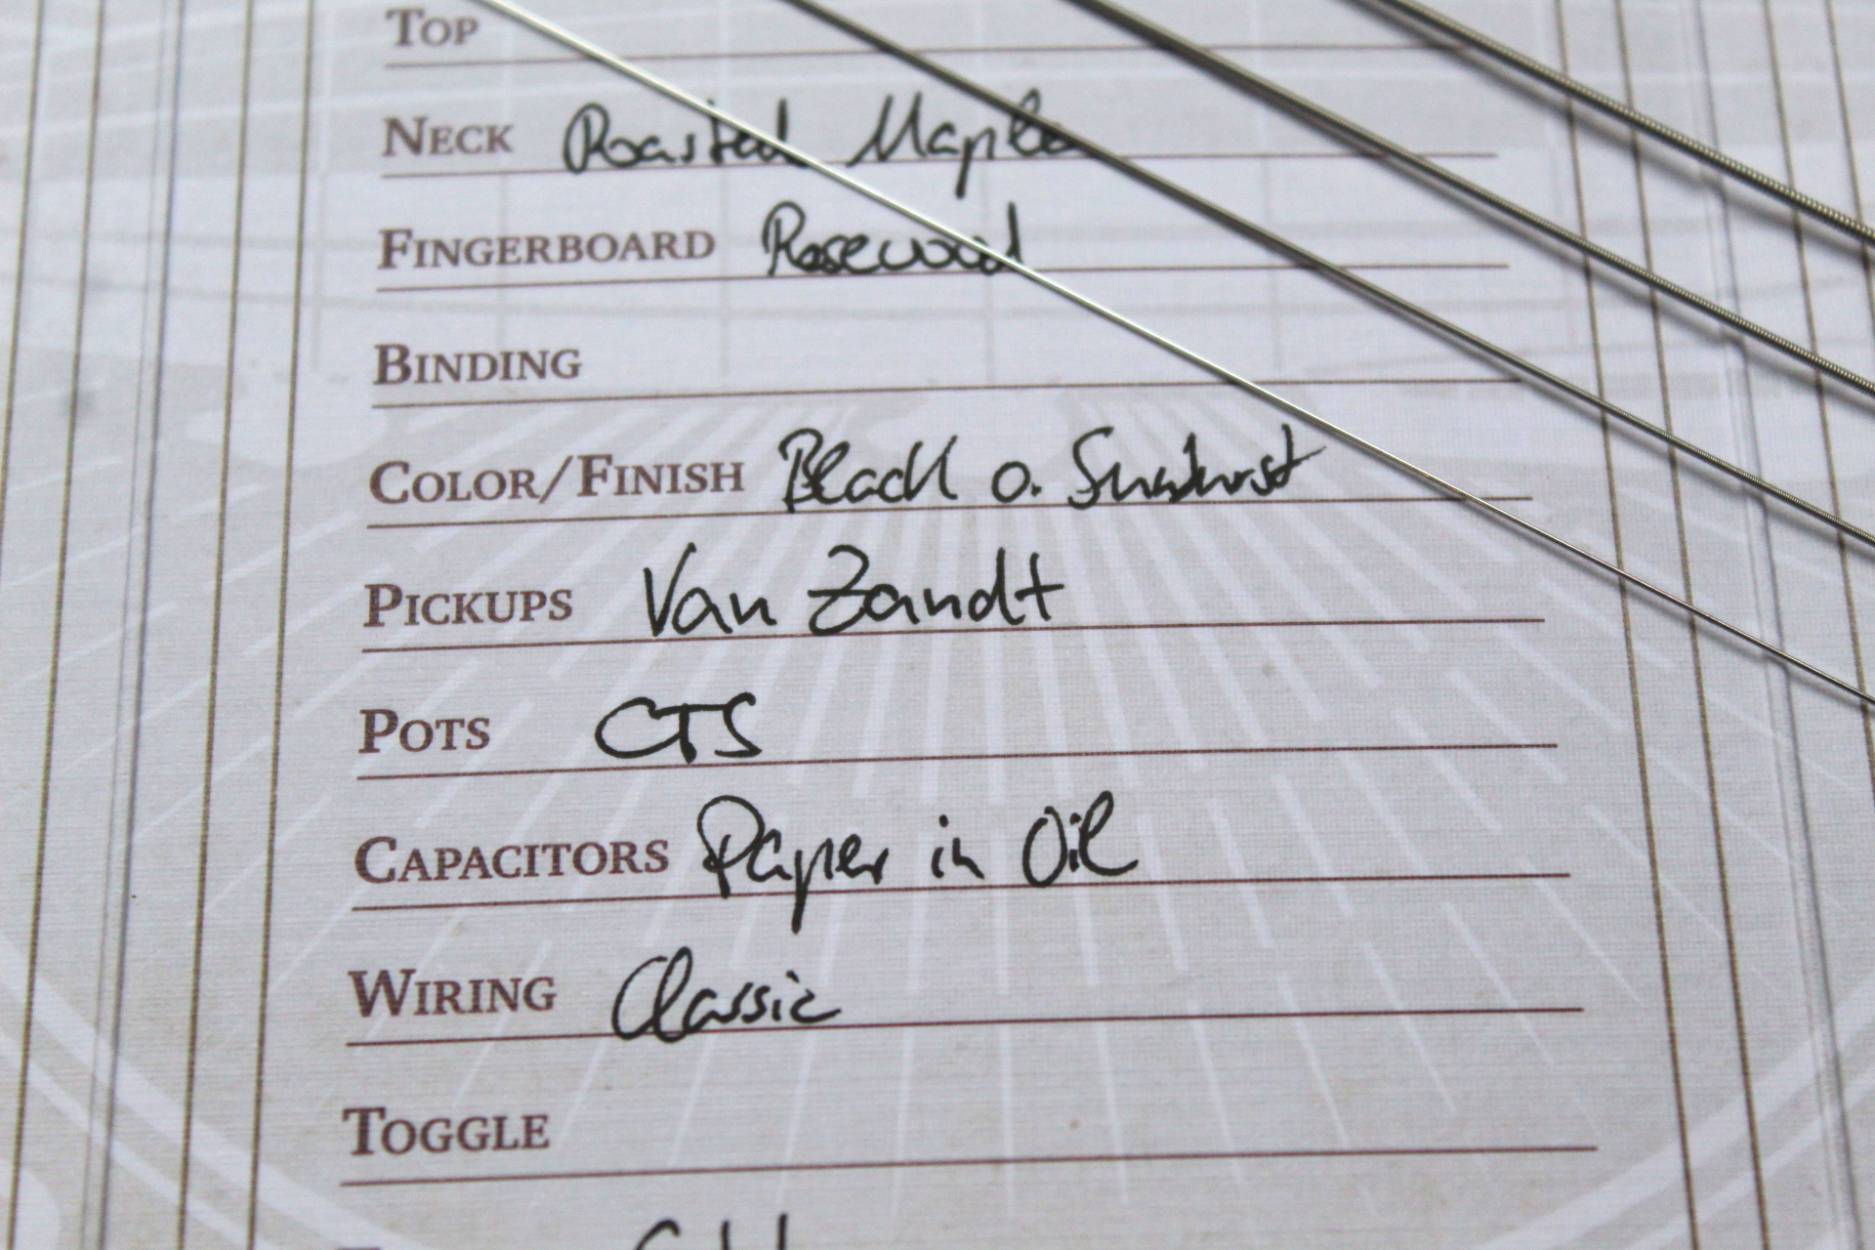 TOP
NECK Roasted Maple
FINGERBOARD Rosewood
BINDING
COLOR/FINISH Black o. Sunburst
PICKUPS Van Zandt
POTS CTS
CAPACITORS Paper in Oil
WIRING Classic
TOGGLE